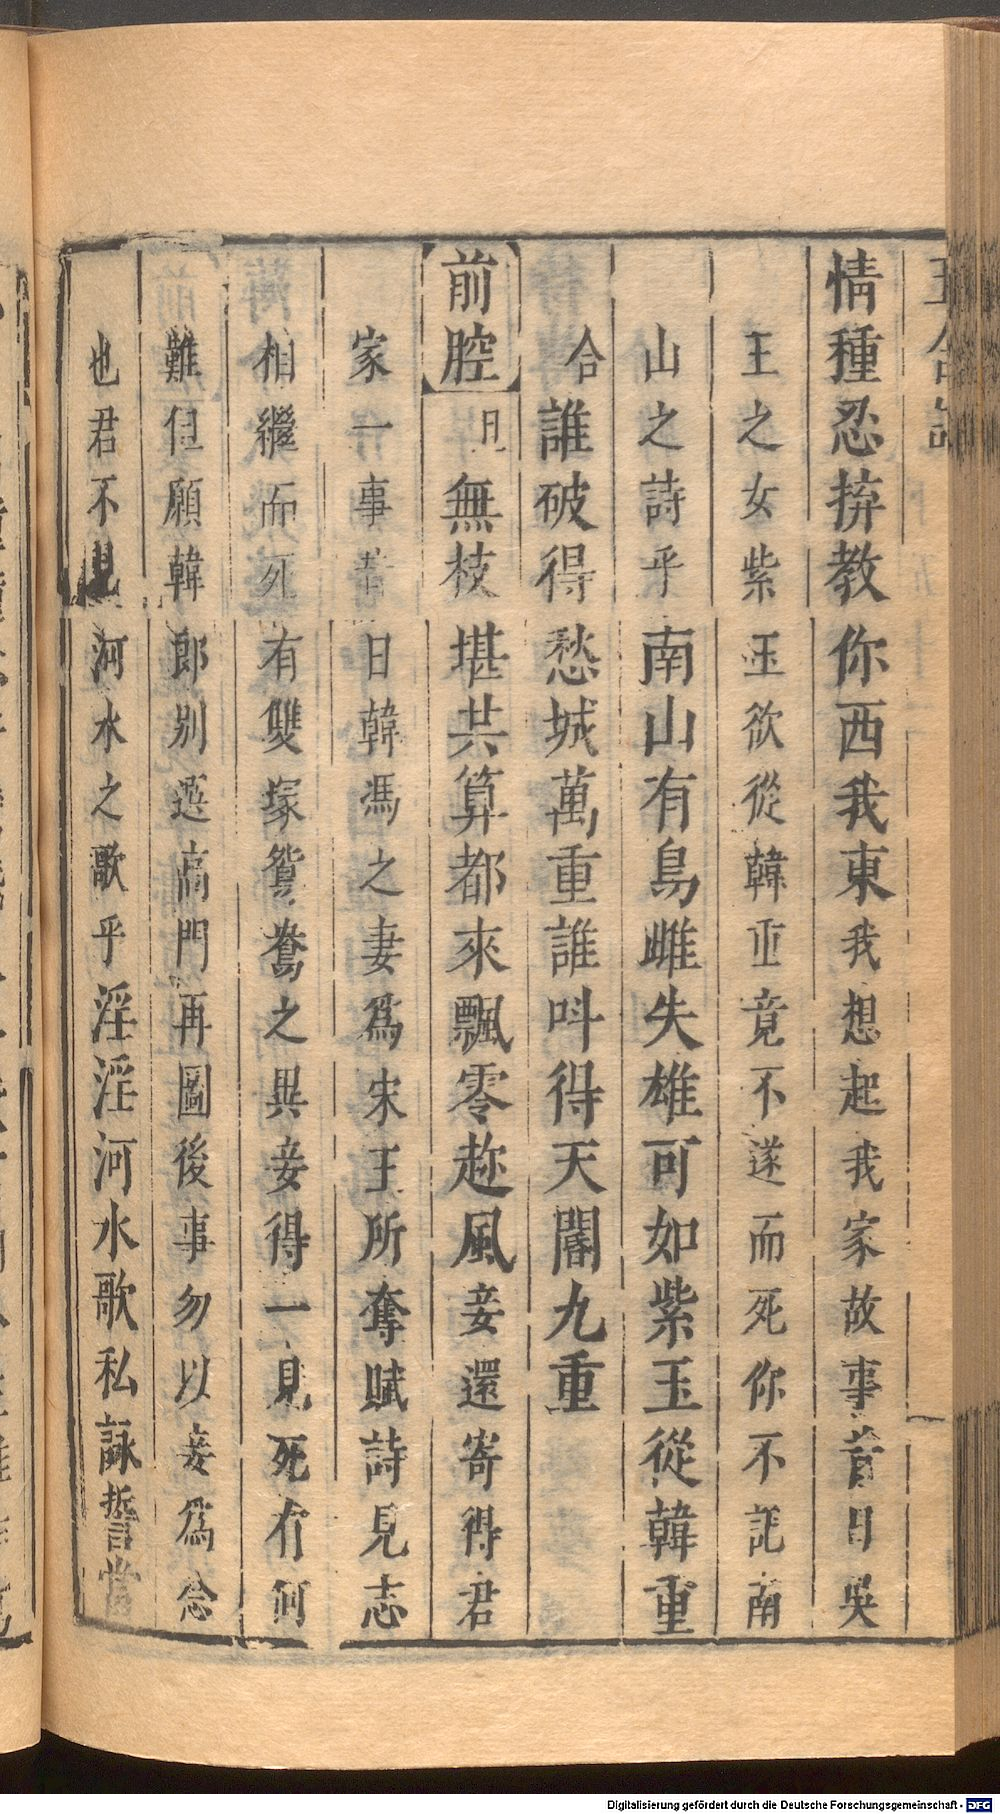 情種忍拚教你西我東我想起我家故事昔日吳
王之女紫玉欲從韓重竟不遂而死你不記南
山之詩乎南山有鳥雌失雄可如紫玉從韓重
合誰破得愁城萬重誰呌得天閽九重
前腔旦無枝堪共算都來飄零趂風妾還寄得君
家一事昔日韓馮之妻爲宋王所奪賦詩見志
相繼而死有雙塚鴛鴦之異妾得一見死有何
難但願韓郎別選高門再圖後事勿以妾爲念
也君不見河水之歌乎淫淫河水歌私詠誓當
Digitalisierung gefördert durch die Deutsche Forschungsgemeinschaft - DFG